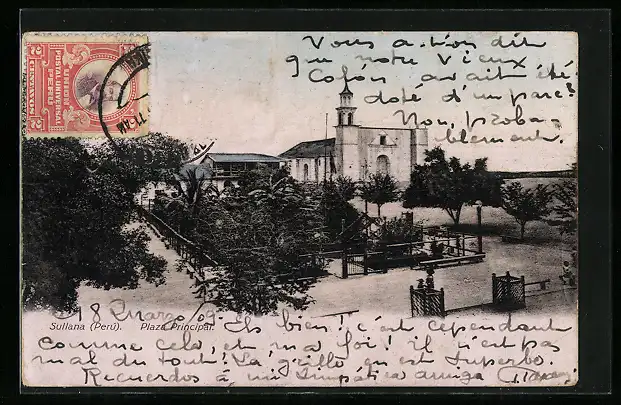 Vous a-t-on dit
que notre Vieux
Colón avait été
doté d'un parc?
Non, proba-
blement.
2 2
UNION
POSTAL UNIVERSAL
PERU
2 CENTAVOS 2
11 AM
18 Marzo/09
Sullana (Perú). Plaza Principal.
Eh bien! c'est cependant
comme cela, et ma foi! il n'est pas
mal du tout. La grille en est superbe.
Recuerdos á mi simpática amiga